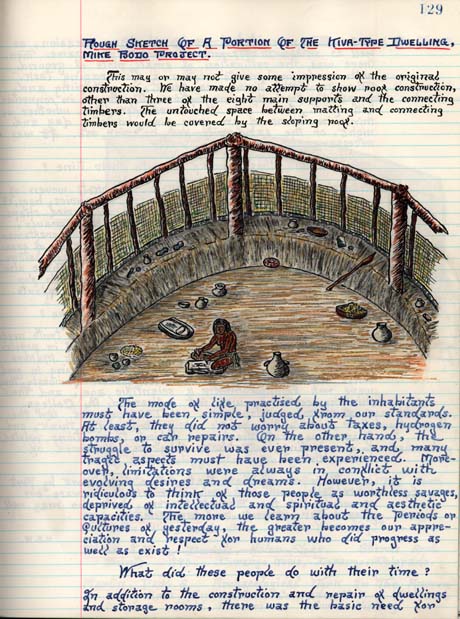 129
ROUGH SKETCH OF A PORTION OF THE KIVA-TYPE DWELLING,
MIKE BODO PROJECT.
This may or may not give some impression of the original
construction. We have made no attempt to show roof construction,
other than three of the eight main supports and the connecting
timbers. The untouched space between matting and connecting
timbers would be covered by the sloping roof.
The mode of life practised by the inhabitants
must have been simple, judged from our standards.
At least, they did not worry about taxes, hydrogen
bombs, or car repairs. On the other hand, the
struggle to survive was ever present, and many
tragic aspects must have been experienced. More-
over, limitations were always in conflict with
evolving desires and dreams. However, it is
ridiculous to think of those people as worthless savages,
deprived of intellectual and spiritual and aesthetic
capacities. The more we learn about the periods or
cultures of yesterday, the greater becomes our appre-
ciation and respect for humans who did progress as
well as exist!
What did these people do with their time?
In addition to the construction and repair of dwellings
and storage rooms, there was the basic need for